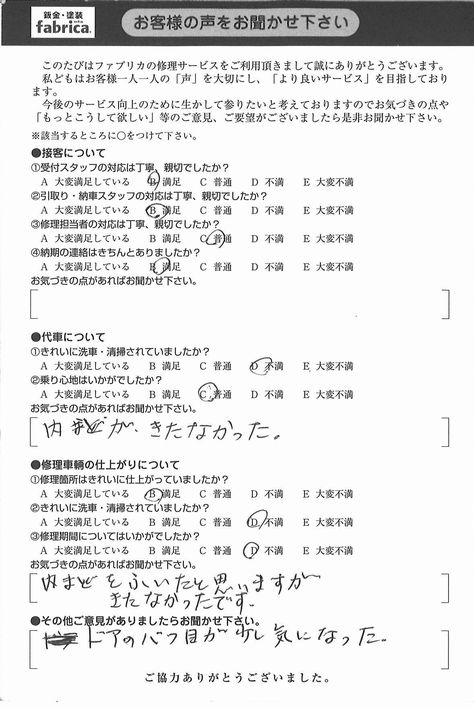 鈑金・塗装
fabrica.
お客様の声をお聞かせ下さい
このたびはファブリカの修理サービスをご利用頂きまして誠にありがとうございます。
私どもはお客様一人一人の「声」を大切にし、「より良いサービス」を目指しております。
今後のサービス向上のために生かして参りたいと考えておりますのでお気づきの点や
「もっとこうして欲しい」等のご意見、ご要望がございましたら是非お聞かせ下さい。
※該当するところに○をつけて下さい。
●接客について
①受付スタッフの対応は丁寧、親切でしたか?
A 大変満足している B 満足 C 普通 D 不満 E 大変不満
②引取り・納車スタッフの対応は丁寧、親切でしたか?
A 大変満足している B 満足 C 普通 D 不満 E 大変不満
③修理担当者の対応は丁寧、親切でしたか?
A 大変満足している B 満足 C 普通 D 不満 E 大変不満
④納期の連絡はきちんとありましたか?
A 大変満足している B 満足 C 普通 D 不満 E 大変不満
お気づきの点があればお聞かせ下さい。
●代車について
①きれいに洗車・清掃されていましたか?
A 大変満足している B 満足 C 普通 D 不満 E 大変不満
②乗り心地はいかがでしたか?
A 大変満足している B 満足 C 普通 D 不満 E 大変不満
お気づきの点があればお聞かせ下さい。
内まどが、きたなかった。
●修理車輌の仕上がりについて
①修理箇所はきれいに仕上がっていましたか?
A 大変満足している B 満足 C 普通 D 不満 E 大変不満
②きれいに洗車・清掃されていましたか?
A 大変満足している B 満足 C 普通 D 不満 E 大変不満
③修理期間についてはいかがでしたか?
A 大変満足している B 満足 C 普通 D 不満 E 大変不満
お気づきの点があればお聞かせ下さい。
内まどをふいたと思いますが
きたなかったです。
●その他ご意見がありましたらお聞かせ下さい。
ドアのバフ目が少し気になった。
ご協力ありがとうございました。